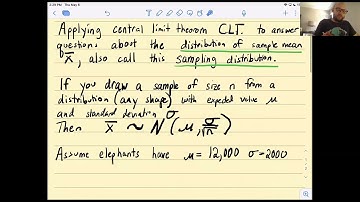 Applying central limit theorem CLT. to answer
questions about the distribution of sample mean
X̄, also call this sampling distribution.
If you draw a sample of size n from a
distribution (any shape) with expected value μ
and standard deviation σ
Then X̄ ~ N(μ, σ/√n)
Assume elephants have μ = 12,000 σ=2000